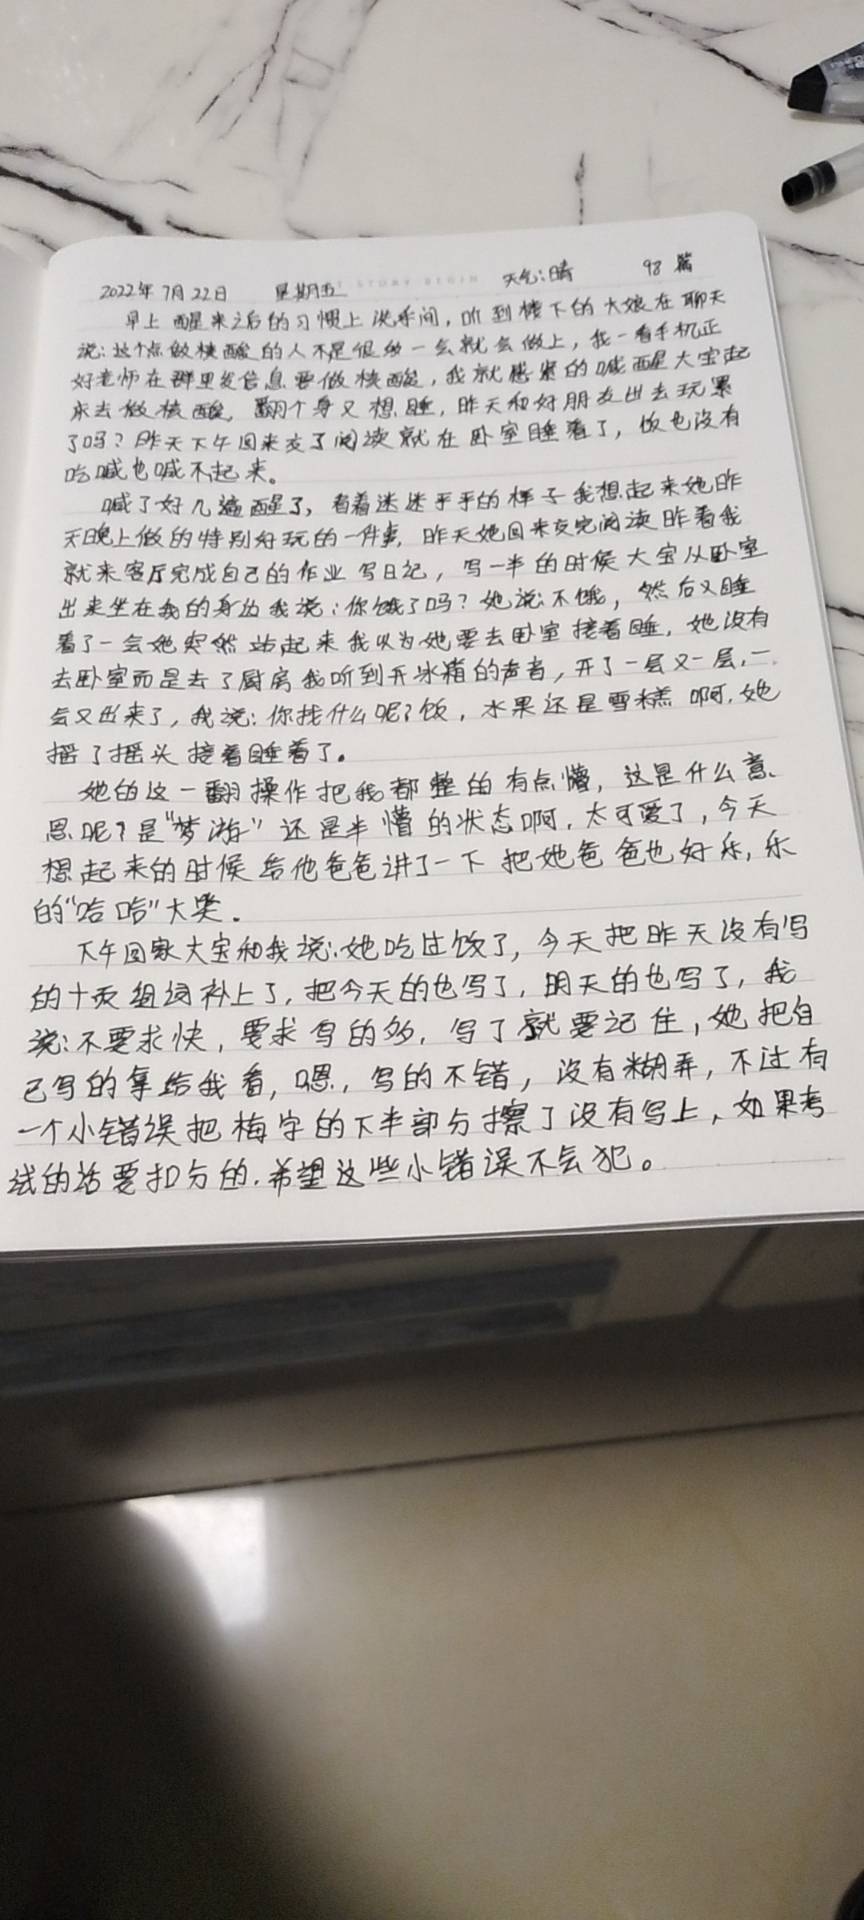 2022年 7月 22日 星期五 STORY BEGIN 天气:晴 98 篇
早上醒来之后的习惯上洗手间，听到楼下的大娘在聊天
说:这个点做核酸的人不是很多一会就会做上，我一看手机正
好老师在群里发信息要做核酸，我就感紧的喊醒大宝起
床去做核酸，翻个身又想睡，昨天和好朋友出去玩累
了吗?昨天下午回来交了阅读就在卧室睡着了，饭也没有
吃喊也喊不起来。
喊了好几遍醒了，看着迷迷乎乎的样子我想起来她昨
天晚上做的特别好玩的一件事，昨天她回来交完阅读昨着我
就来客厅完成自己的作业写日记，写一半的时候大宝从卧室
出来坐在我的身边我说:你饿了吗?她说:不饿，然后又睡
着了一会她突然站起来我以为她要去卧室接着睡，她没有
去卧室而是去了厨房我听到开冰箱的声音，开了一层又一层，一
会又出来了，我说:你找什么呢?饭，水果还是雪糕啊，她
摇了摇头接着睡着了。
她的这一翻操作把我都整的有点懵，这是什么意
思呢?是“梦游”还是半懵的状态啊，太可爱了，今天
想起来的时候给他爸爸讲了一下把她爸爸也好乐，乐
的“哈哈”大笑。
下午回家大宝和我说:她吃过饭了，今天把昨天没有写
的十页组词补上了，把今天的也写了，明天的也写了，我
说:不要求快，要求写的多，写了就要记住，她把自
己写的拿给我看，嗯，写的不错，没有糊弄，不过有
一个小错误把梅字的下半部分擦了没有写上，如果考
试的话要扣分的，希望这些小错误不会犯。